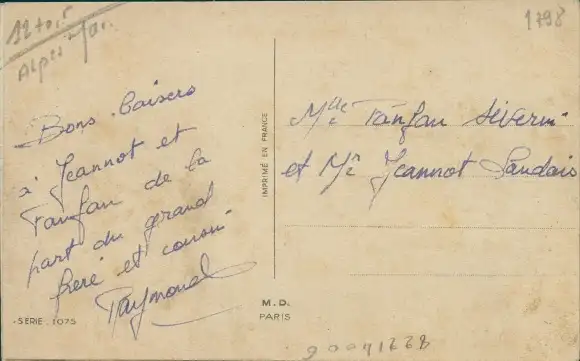 1798
Bons baisers
à Jeannot et
Fanfan de la
part du grand
frère et cousin
Raymond
Mlle Fanfan Séverin
et Mr Jeannot
IMPRIMÉ EN FRANCE
SERIE. 1075
M. D.
PARIS